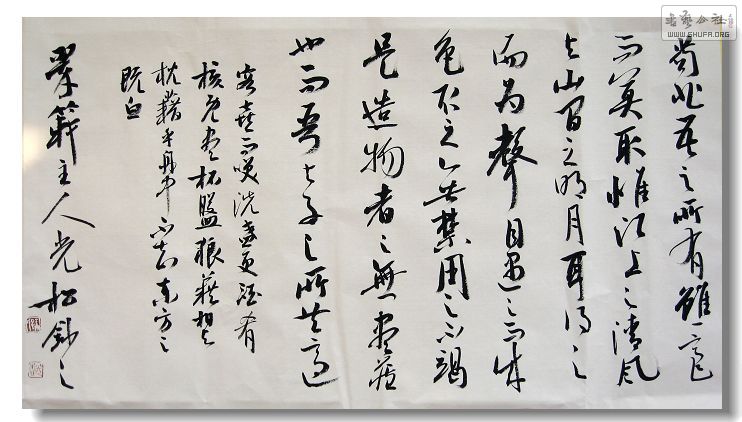 苟非吾之所有雖一毫
而莫取惟江上之清風
与山間之明月耳得之
而為聲目遇之而成
色取之無禁用之不竭
是造物者之無盡藏
也而吾与子之所共適
客喜而笑洗盞更酌肴
核既盡杯盤狼藉相与
枕藉乎舟中不知東方之
既白
主人光松鈔之
书艺公社
WWW.SHUFA.ORG